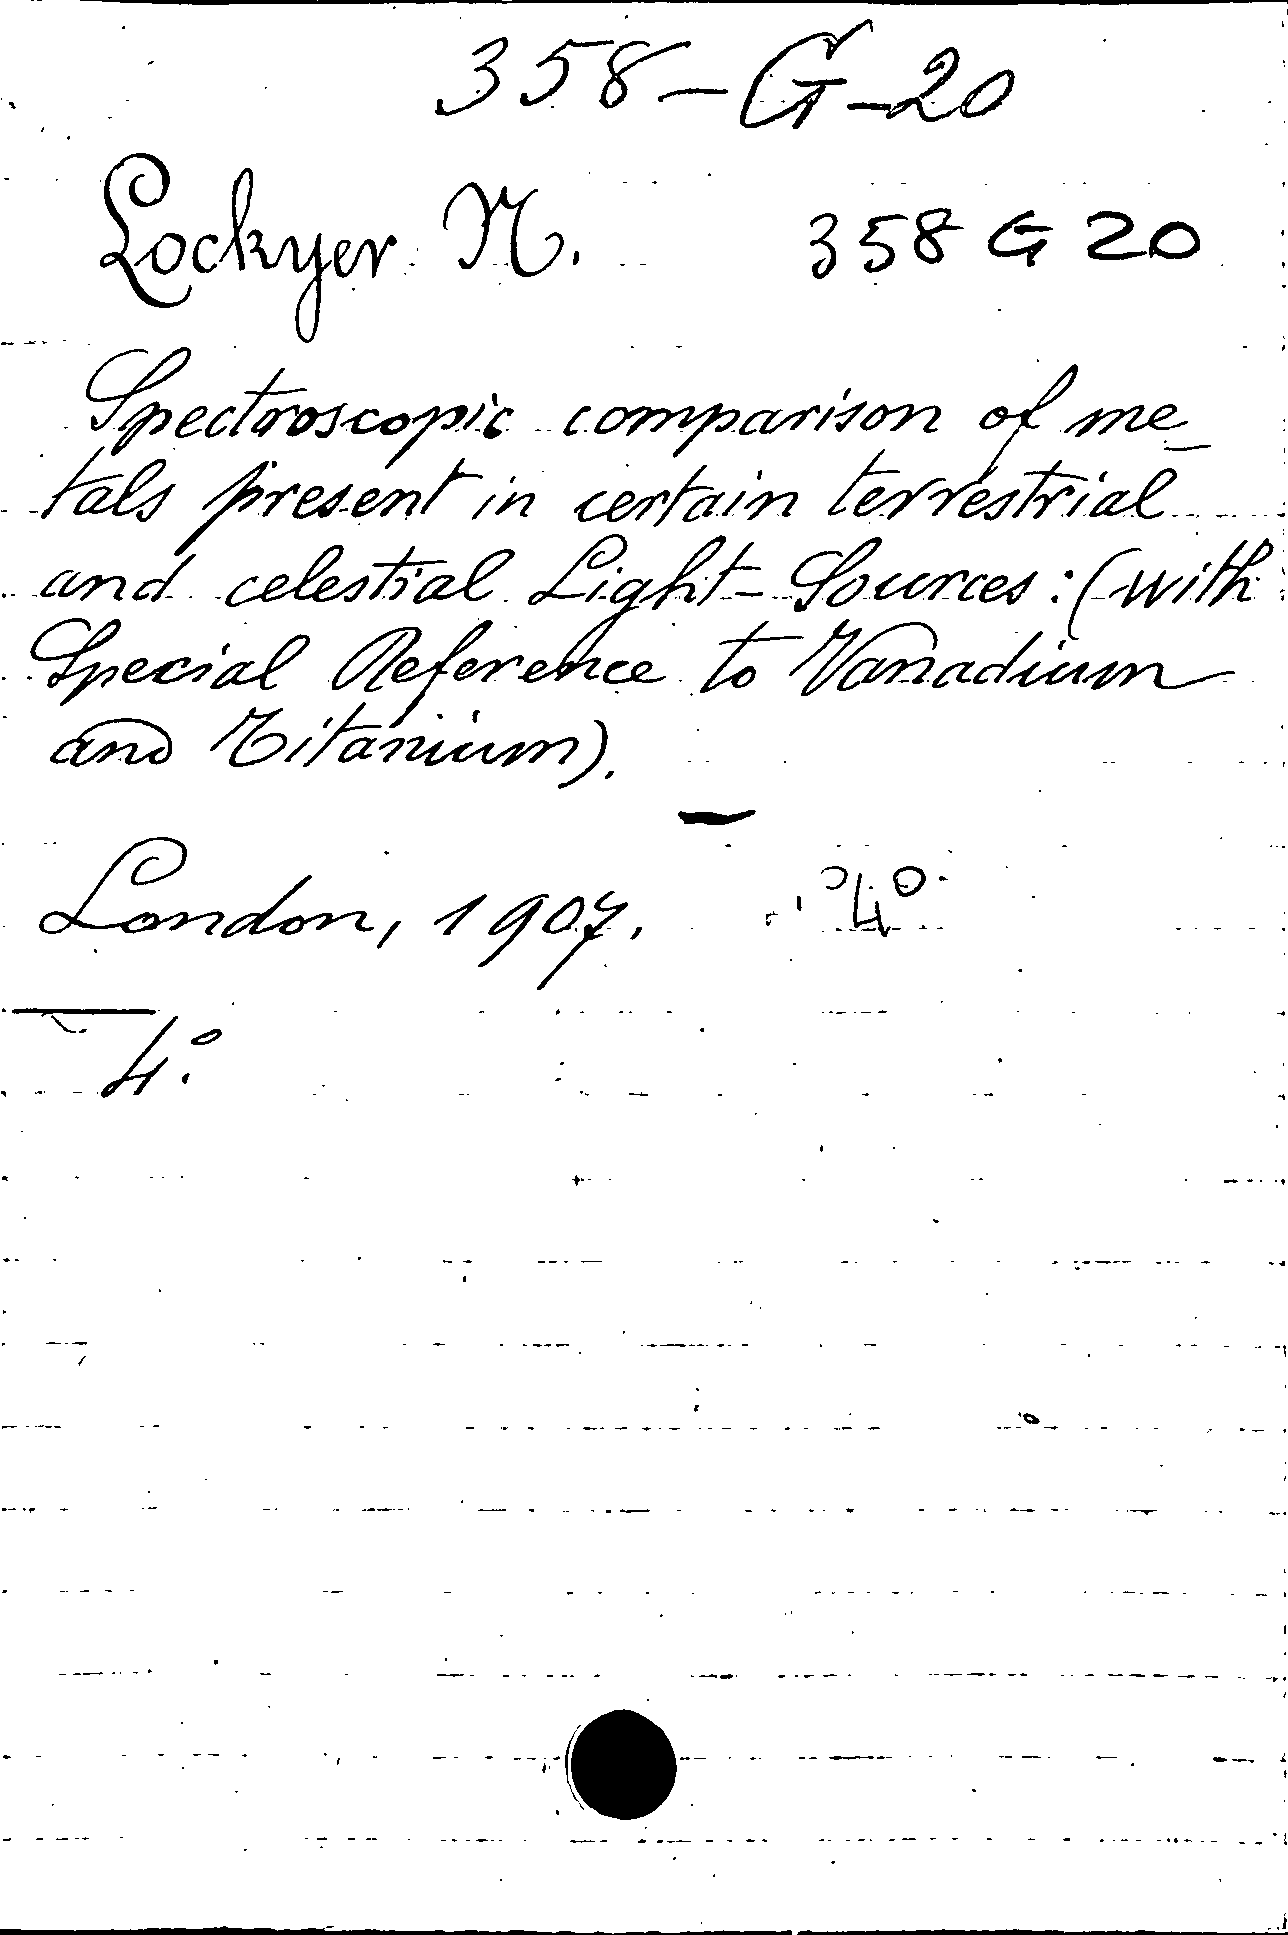 358-G-20
Lockyer N. 358 G 20
Spectroscopic comparison of me_
tals present in certain terrestrial
and celestial Light-Sources: (with
Special Reference to Vanadium
and Titanium).
London, 1907. 4°
4°.